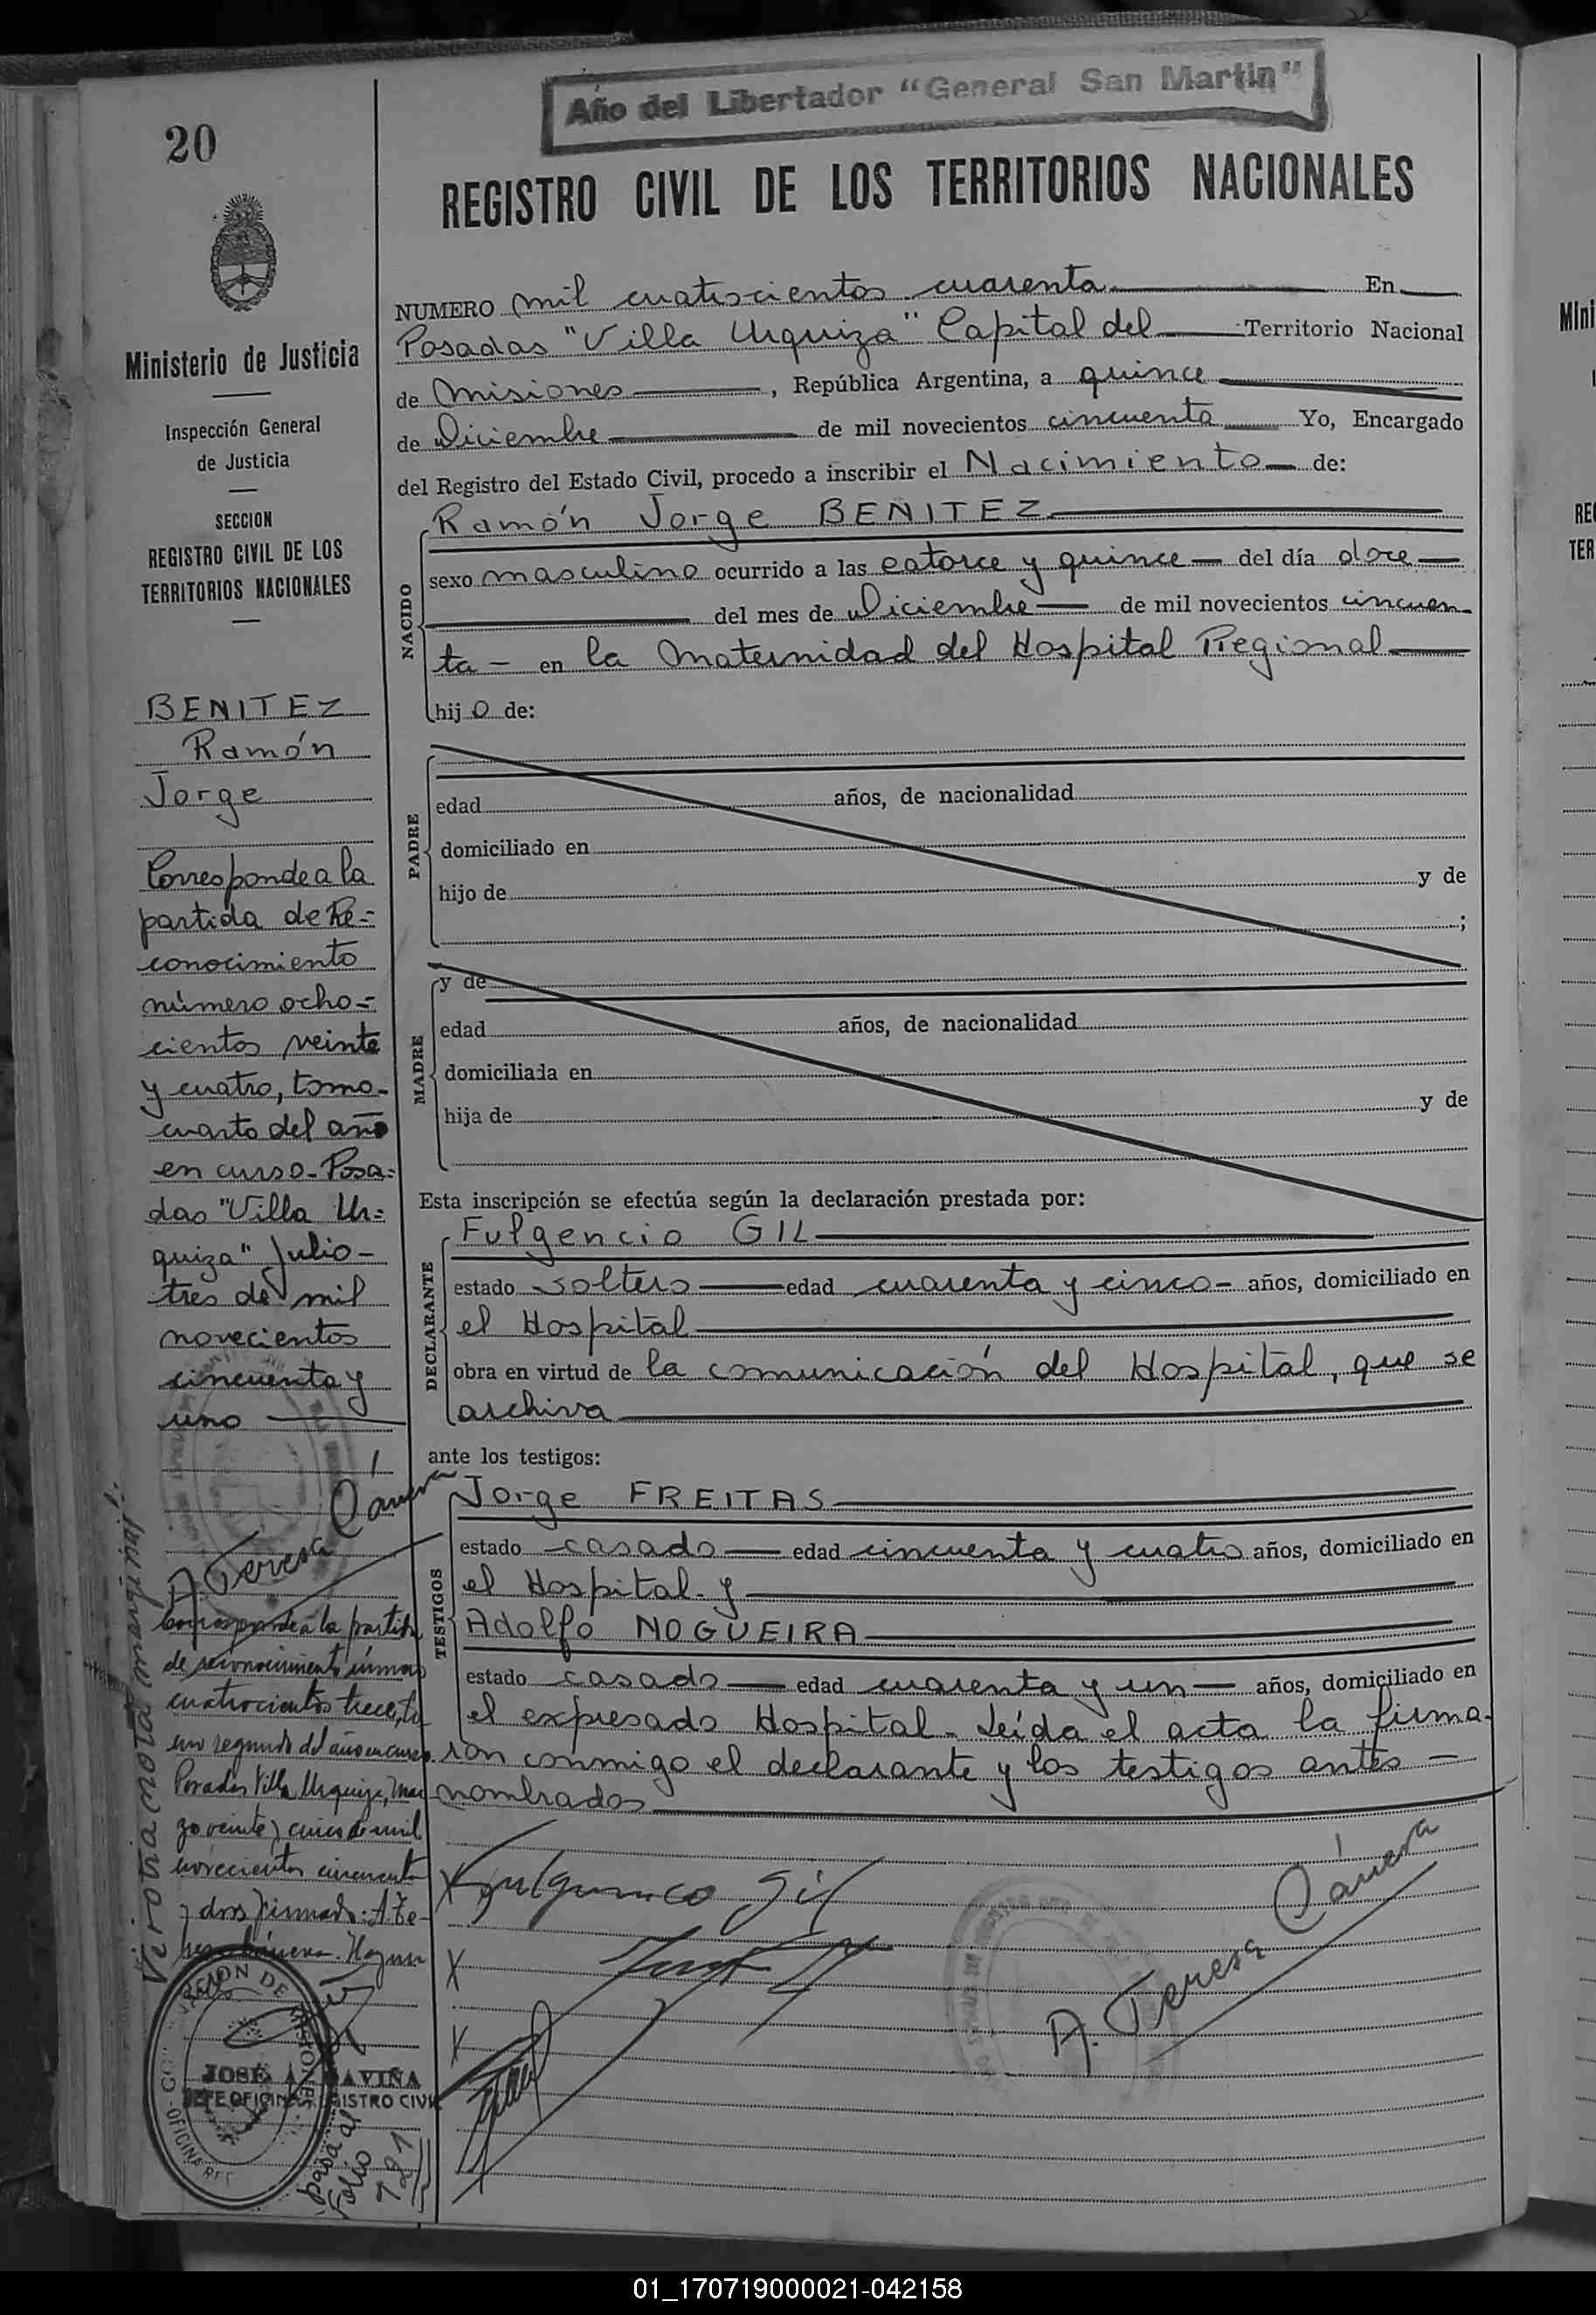 Año del Libertador "General San Martin"
20
REGISTRO CIVIL DE LOS TERRITORIOS NACIONALES
Ministerio de Justicia
Inspección General
de Justicia
SECCION
REGISTRO CIVIL DE LOS
TERRITORIOS NACIONALES
BENITEZ
Ramón
Jorge
Corresponde a la
partida de Re=
conocimiento
número ocho=
cientos veinte
y cuatro, tomo
cuarto del año
en curso - Posa=
das "Villa Ur=
quiza" Julio -
tres de mil
novecientos
cincuenta y
uno
A. Teresa Cánera
Corresponde a la partida
de reconocimiento número
cuatrocientos trece, to
mo segundo del año en curso.
Posadas Villa Urquiza, Mar
zo veinte y cinco de mil
novecientos cincuenta
y dos firmado: A. Te-
resa Cánera. Hay un
Vi otra nota marginal:
JOSÉ A. GAVIÑA
JEFE OFICINA REGISTRO CIVIL
pasa al
folio
781
NUMERO mil cuatrocientos cuarenta En
Posadas "Villa Urquiza" Capital del Territorio Nacional
de Misiones, República Argentina, a quince
de Diciembre de mil novecientos cincuenta Yo, Encargado
del Registro del Estado Civil, procedo a inscribir el Nacimiento de:
NACIDO
Ramón Jorge BENITEZ
sexo masculino ocurrido a las catorce y quince del día doce
del mes de Diciembre de mil novecientos cincuen-
ta - en la Maternidad del Hospital Regional
hijo de:
PADRE
edad años, de nacionalidad
domiciliado en
hijo de y de
;
MADRE
y de
edad años, de nacionalidad
domiciliada en
hija de y de
Esta inscripción se efectúa según la declaración prestada por:
DECLARANTE
Fulgencio GIL
estado soltero edad cuarenta y cinco - años, domiciliado en
el Hospital
obra en virtud de la comunicación del Hospital, que se
archiva
ante los testigos:
TESTIGOS
Jorge FREITAS
estado casado edad cincuenta y cuatro años, domiciliado en
el Hospital y
Adolfo NOGUEIRA
estado casado edad cuarenta y un años, domiciliado en
el expresado Hospital - Leída el acta la firma-
ron conmigo el declarante y los testigos antes -
nombrados
X Fulgencio Gil
X
X
A. Teresa Cánera
01_170719000021-042158